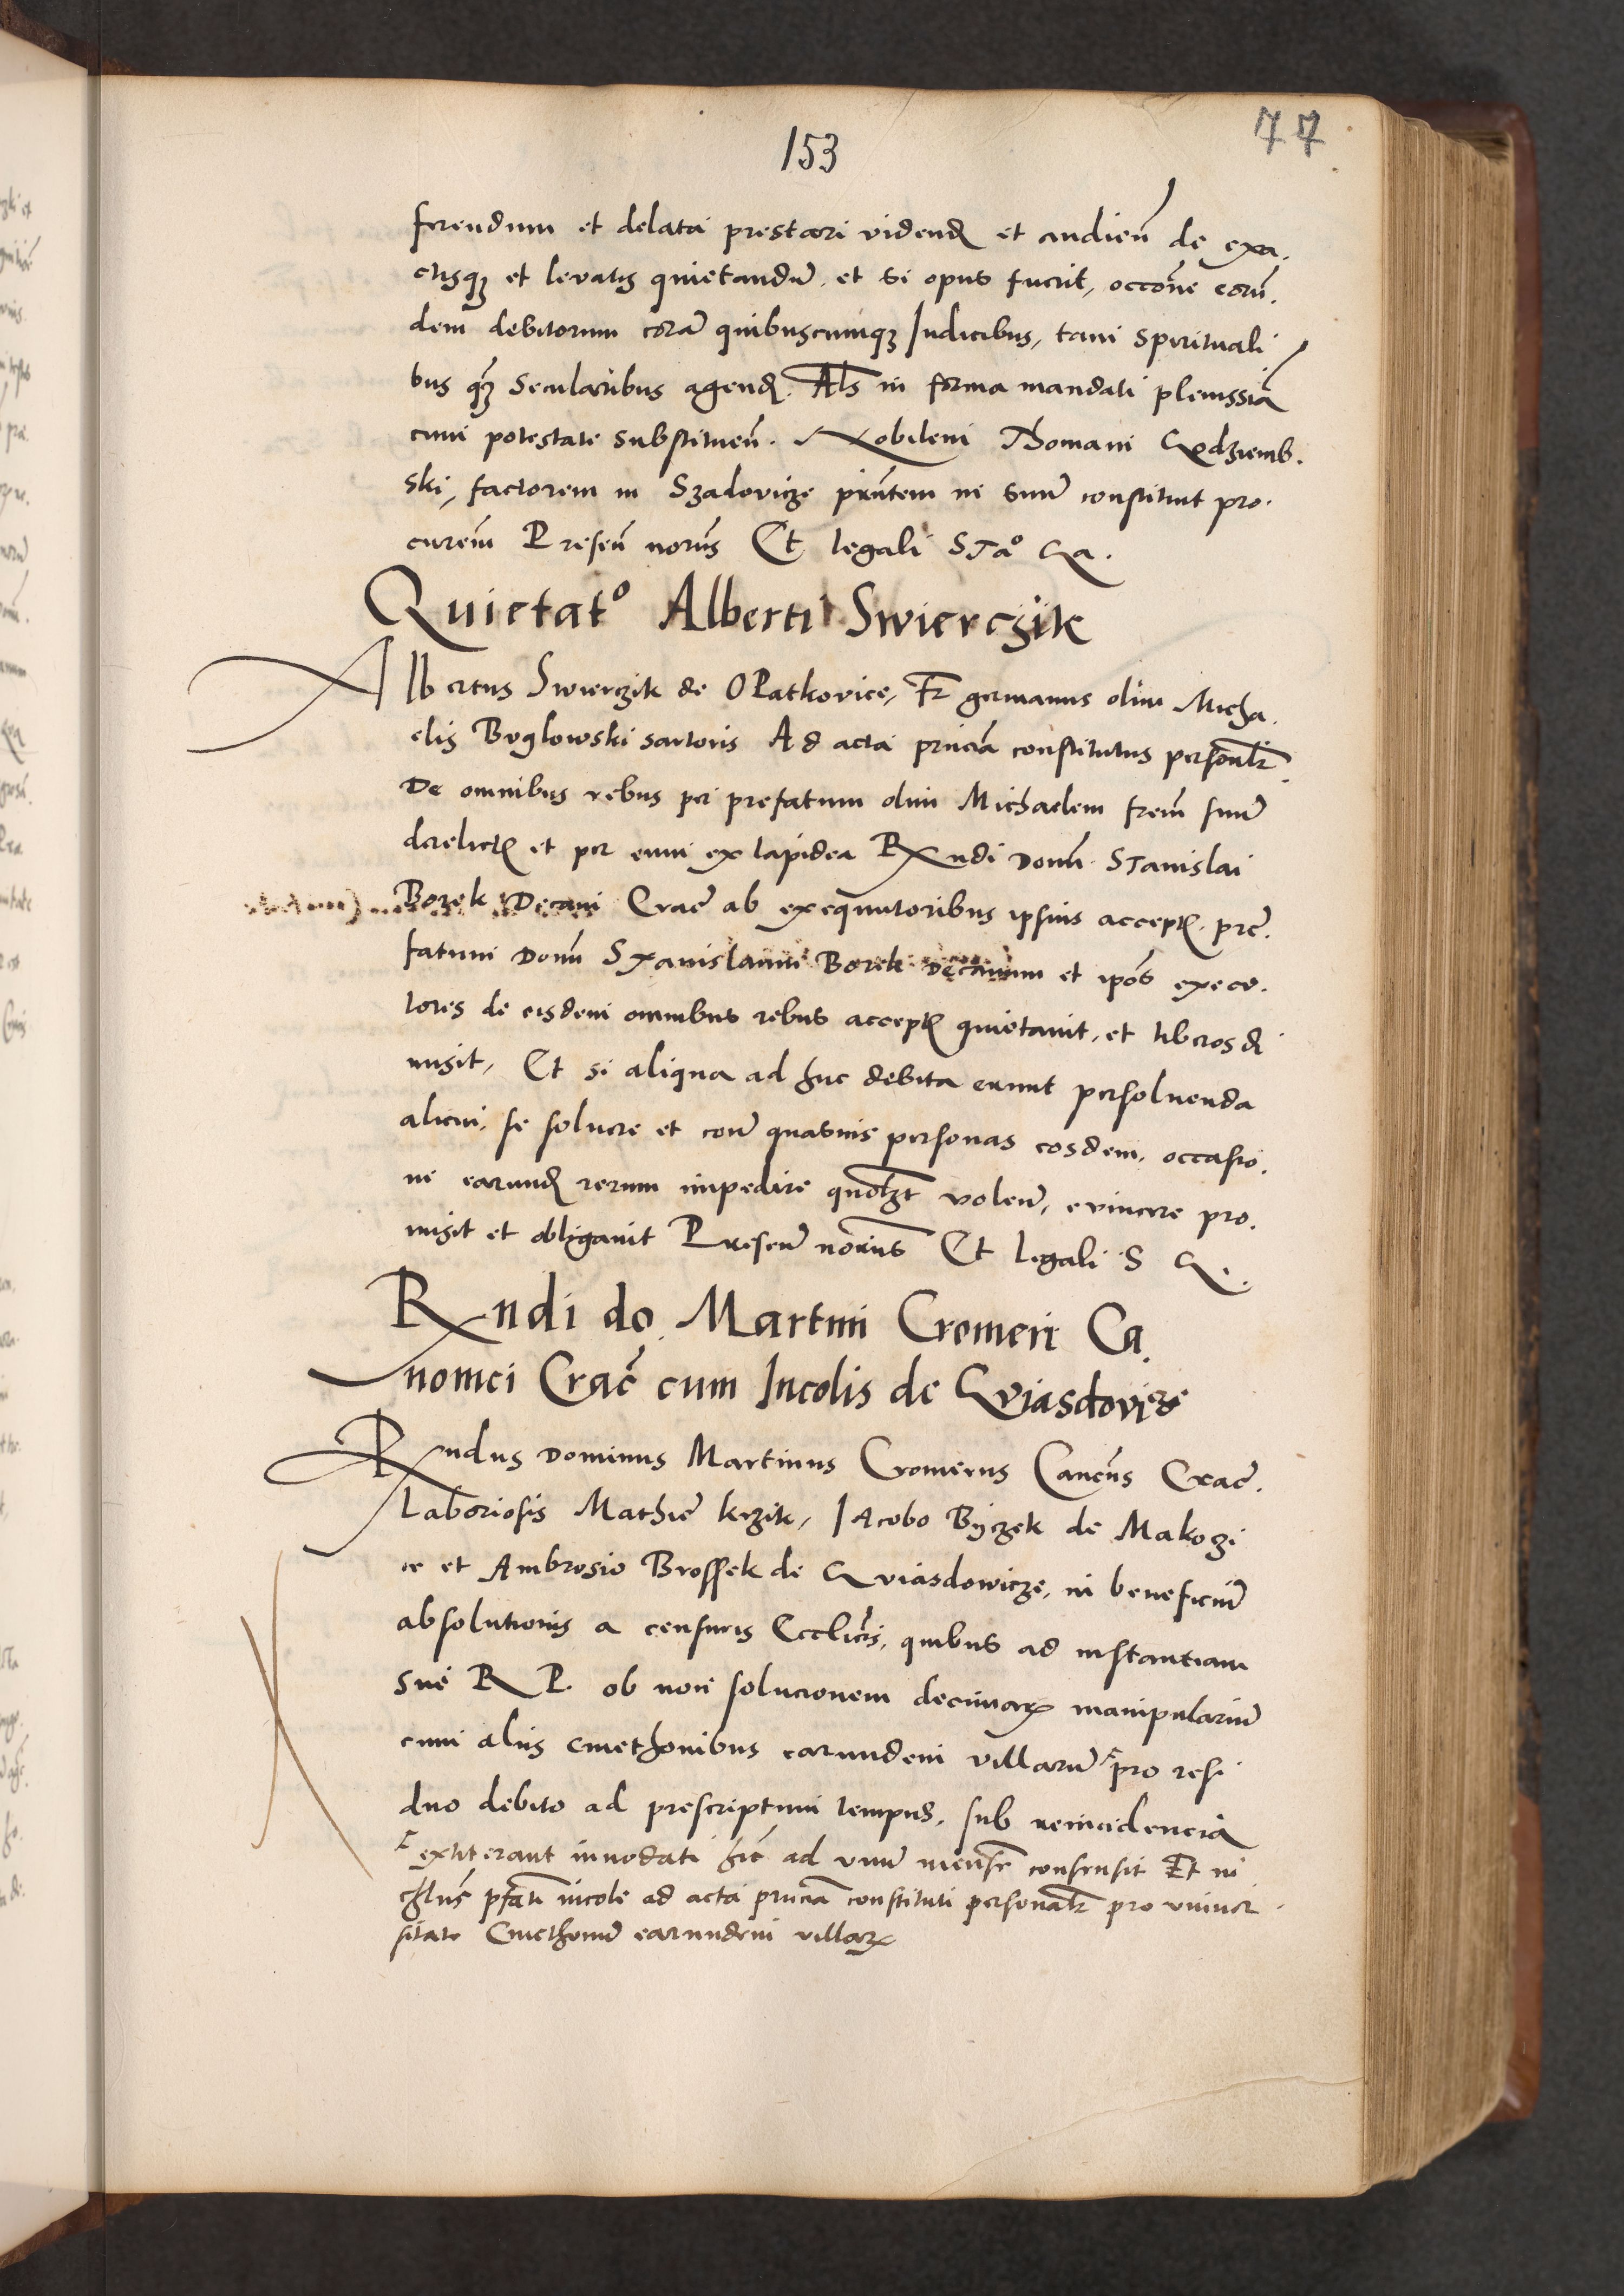 153
77
ferendum et delata prestari videnđ et audień de exa.
ctisqȝ et levatis quietandū. et si opus fuerit, occōne eorū.
dem debitorum corā quibuscumqȝ Iudicibus, tam Spirituali
bus qȝ Secularibus agenđ. Als in forma mandati plenissīa
cum potestate substituen̄. Nobilem Thomam Godziemb.
ski, factorem in Szadovicze pn̄tem in suum constituit pro.
curem̄ Presen̄ notus Et legali STaº
Quietatº Alberti Swierczik
Albertus Swierczik de OPatkovice, Fr germanus olim Micha.
elis Boglowski sartoris Ad acta prncia constitutus personlr.
De omnibus rebus per prefatum olim Michaelem frem̄ suum
derelict et per eum ex lapidea Rndi Domn Stanislai
Borek Decani Crac̄ ab exequutoribus ipsius accept. pre.
fatum Domn Stanislaum Borek Decanum et ipos execu.
tores de eisdem omnibus rebus accept quietavit, et liberos di
misit, Et si aliqua ad huc debita erunt persolvenda
alicui, se solvere et contra quasvis personas eosdem, occasio.
ne earunđ rerum impedire quolzt volen̄, evincere pro.
misit et obligavit Presen̄ notus Et legali S
Rndi do. Martini Cromeri Ca.
nonici Crac̄ cum Incolis de Gviasdovicze
Rndus Dominus Martinus Cromerus Cancūs Crac̄.
Laboriosis Mathie krzik, Iacobo Byczek de Makoczi
ce et Ambrosio Brossek de Gviasdowicze, in beneficiū
absolutionis a censuris Ecclicis, quibus ad instantiam
sue R P. ob non solucionem decimarꝝ manipulariū
cum aliis cmethonibus earundem villarū pro resi
duo debito ad prescriptum tempus, sub reincidencia
extiterant innodati hīc ad unū mensē consensit Et ni
prati incole ad acta prncia constituti personalr pro univer.
sitate Cmethonū earundem villarꝝ